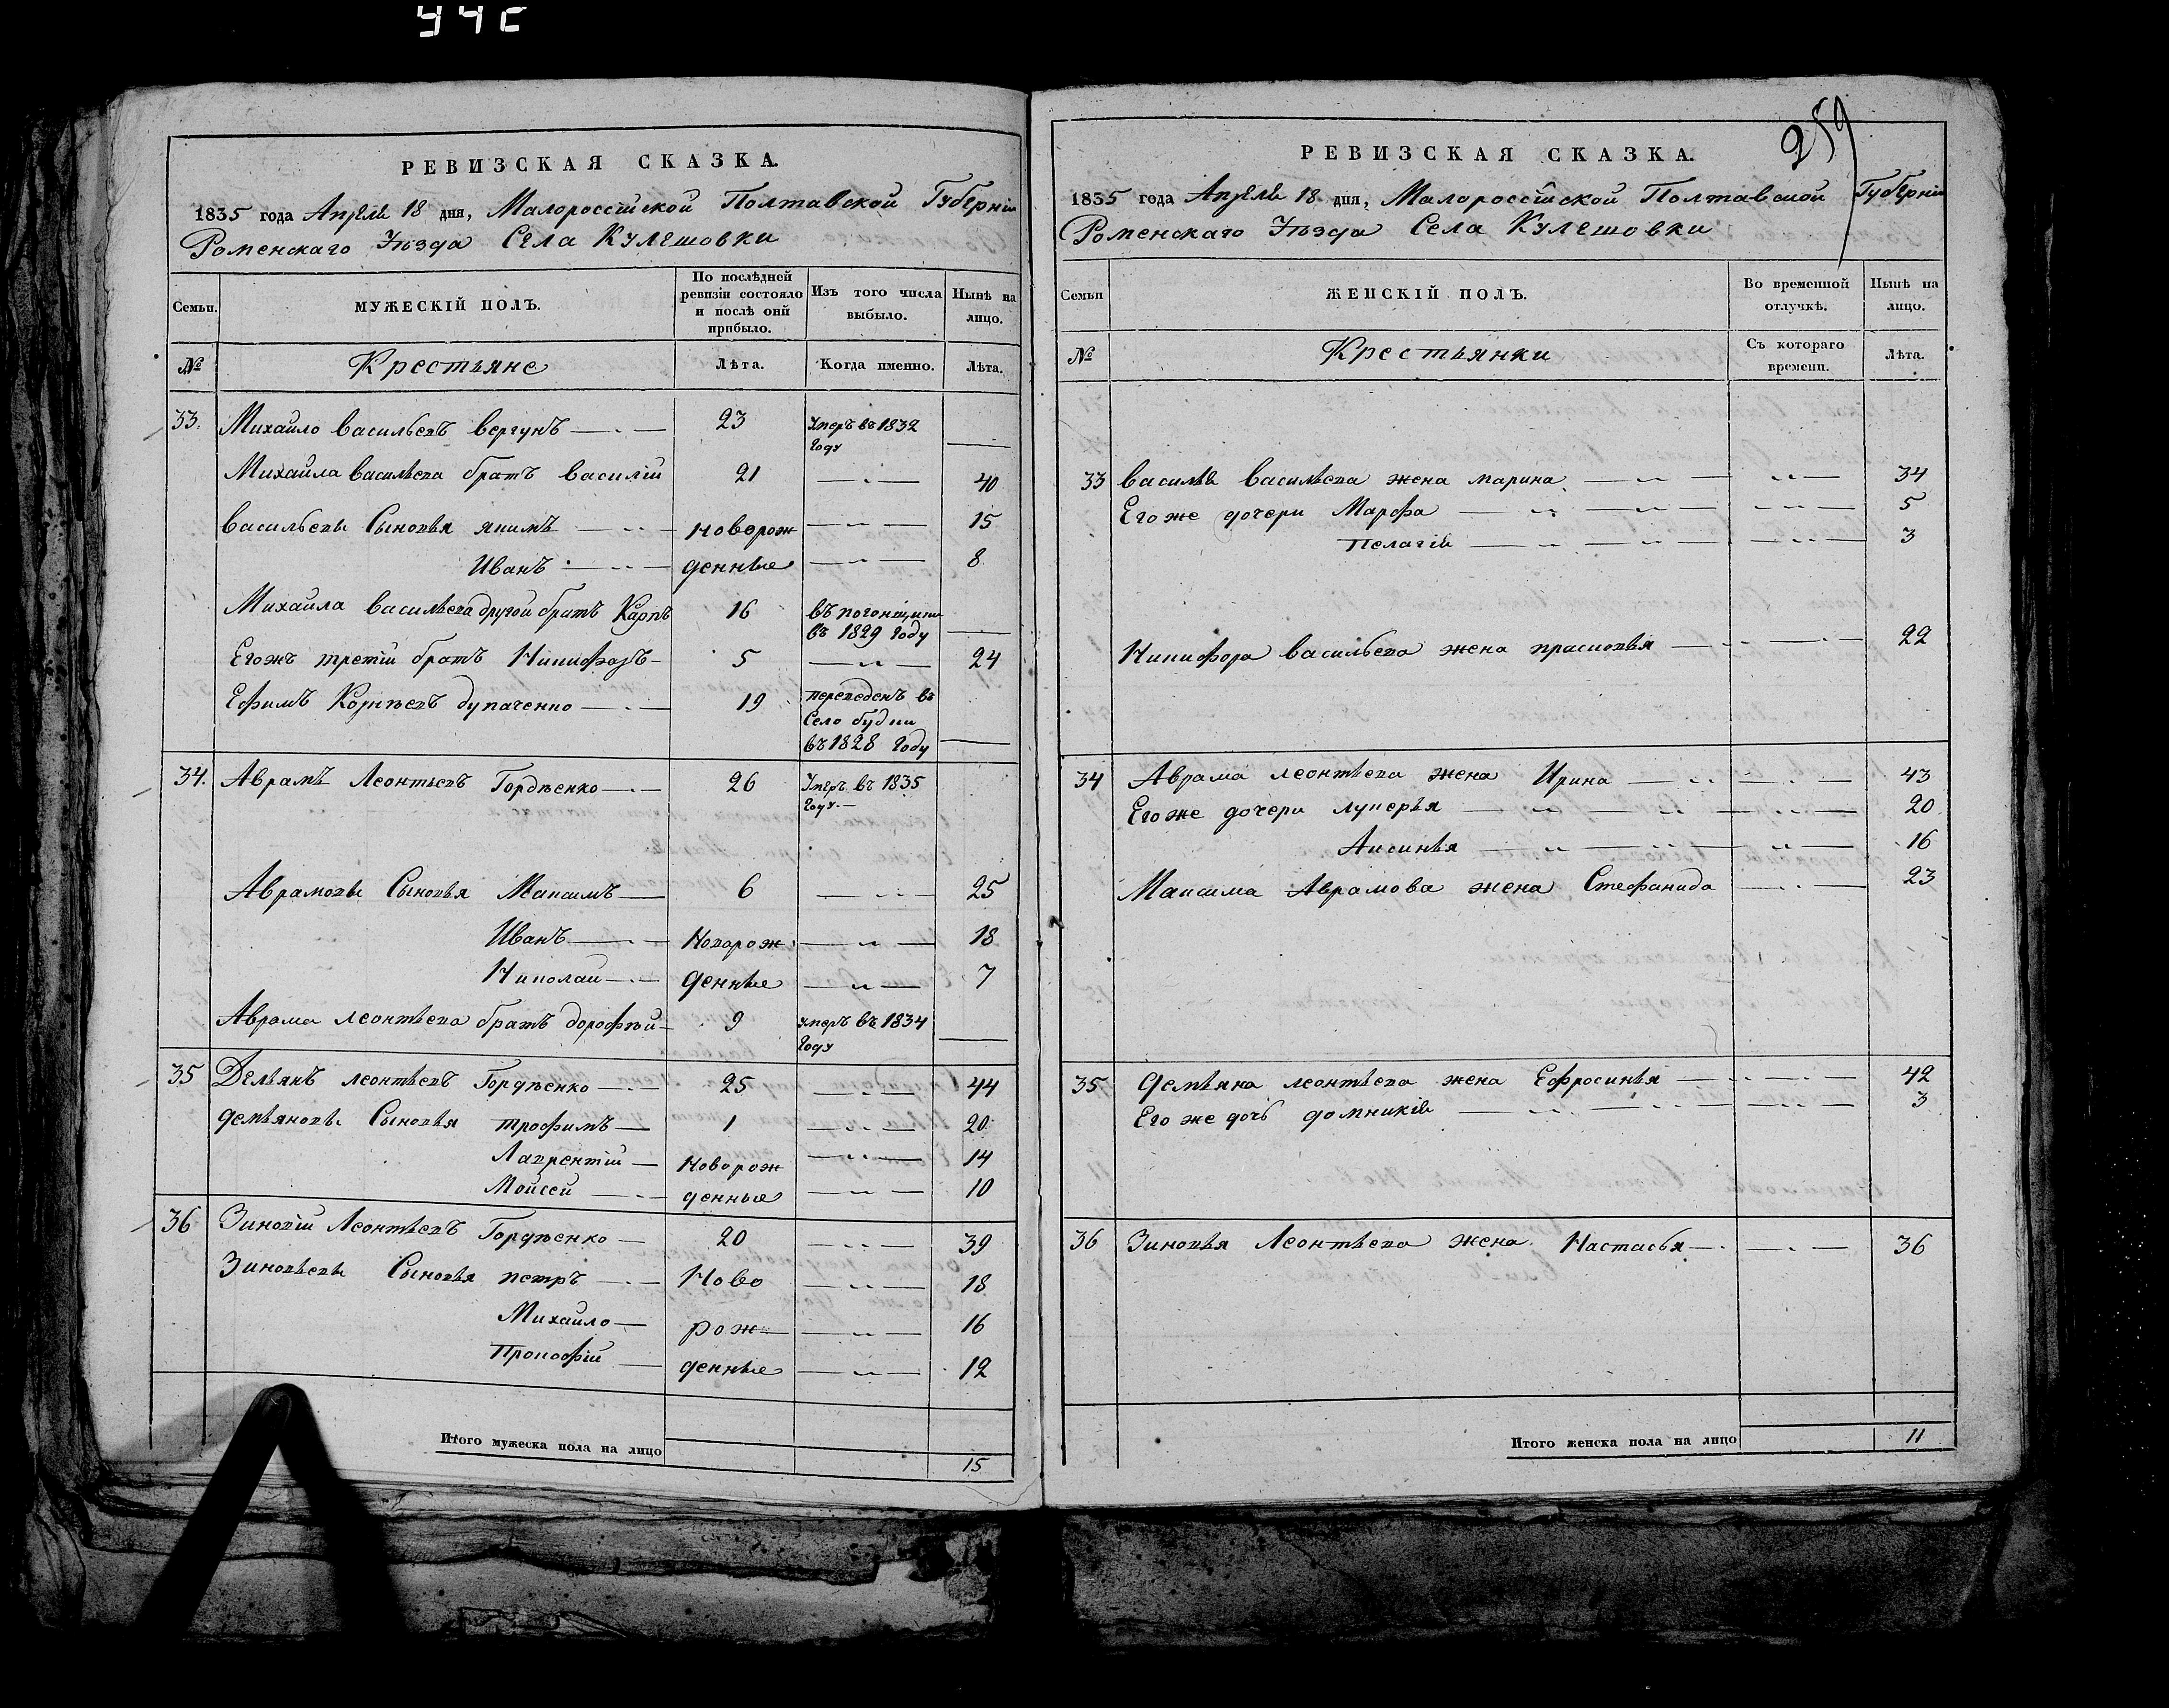 259
РЕВИЗСКАЯ СКАЗКА.
1835 года Апреля 18 дня, Малороссійской Полтавской Губерніи
Роменскаго Уѣзда Села Кулешовки
Семьи.
МУЖЕСКІЙ ПОЛЪ.
По послѣдней ревизіи состояло и послѣ оній прибыло.
Изъ того числа выбыло.
Нынѣ на лицо.
№
Крестьяне
Лѣта.
Когда именно.
Лѣта.
33. Михайло васильевъ вергунъ 23 Умеръ въ 1832
Году
Михайла васильева братъ василій 21 40
васильевы Сыновья якимъ новорож 15
Иванъ денные 8
Михайла васильева другой братъ Карпъ 16 въ погонщики
въ 1829 Году
Егожъ третій братъ Никифоръ 5 24
Ефимъ Корнѣевъ 19 переведенъ въ
Село будки
въ 1828 Году
34. Аврамъ Леонтьевъ Гордѣенко 26 Умеръ въ 1835
Году
Аврамовы Сыновья Максимъ 6 25
Иванъ Новорож 18
Николай денные 7
Аврама леонтьева братъ дорофѣй 9 умеръ въ 1834
Году
35 Демьянъ леонтьевъ Гордѣенко 25 44
демьяновы Сыновья трофимъ 1 20
Лаврентій Новорож 14
Мойсей денные 10
36 Зиновій Леонтьевъ Гордѣенко 20 39
Зиновьевы Сыновья петръ Ново 18
Михайло рож 16
Прокофій денные 12
Итого мужеска пола на лицо
15
РЕВИЗСКАЯ СКАЗКА.
1835 года Апреля 18 дня, Малороссійской Полтавской Губерніи
Роменскаго Уѣзда Села Кулешовки
Семьи
ЖЕНСКІЙ ПОЛЪ.
Во временной отлучкѣ.
Нынѣ на лицо.
№
Крестьянки
Съ котораго времени.
Лѣта.
33 василья васильева жена марина 34
Егоже дочери Марфа 5
Пелагія 3
Никифора васильева жена прасковья 22
34 Аврама леонтьева жена Ирина 43
Егоже дочери лукерья 20
Аксинья 16
Максима Аврамова жена Стефанида 23
35 демьяна леонтьева жена Ефросинья 42
Его же дочь домникія 3
36 Зиновья Леонтьева жена Настасья 36
Итого женска пола на лицо
11